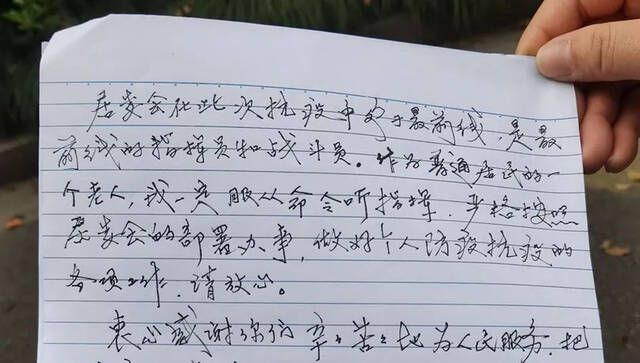 居委会在此次抗疫中处于最前线，是最
前线的指挥员和战斗员。作为普通居民的一
个老人，我一定服从命令听指挥，严格按照
居委会的部署办事，做好个人防疫抗疫的
各项工作，请放心。
衷心感谢你们辛辛苦苦地为人民服务，把